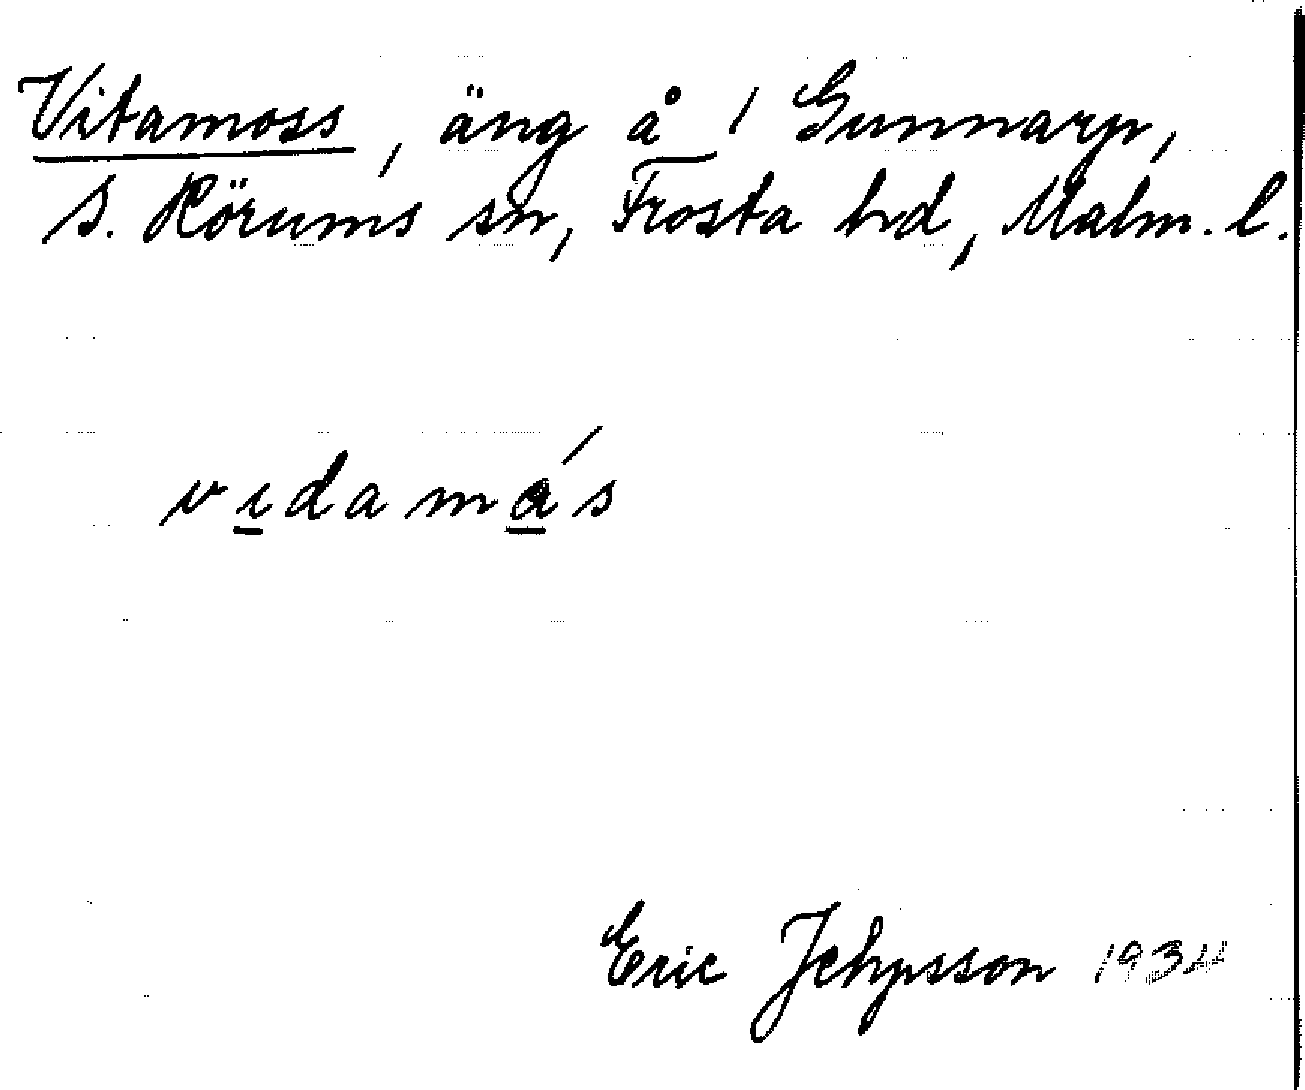 Vitamoss, äng å 1 Gunnarp,
S. Rörums sn, Frosta hd, Malm. l.
vıdamás
Eric Jehpsson 1934